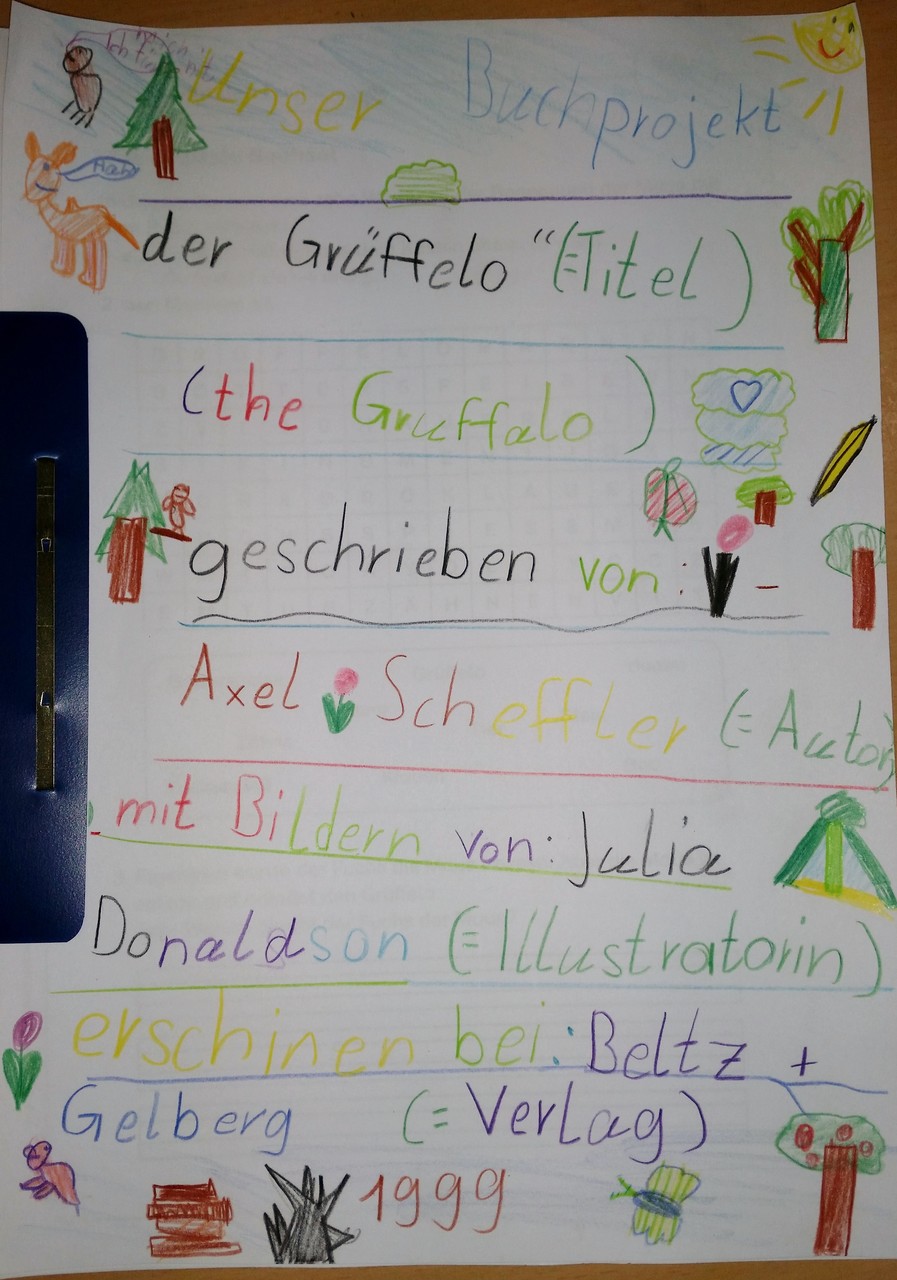 Unser Buchprojekt
der Grüffelo“ (=Titel)
(the Gruffalo)
geschrieben von:
Axel Scheffler (=Autor)
mit Bildern von: Julia
Donaldson (=Illustratorin)
erschinen bei: Beltz +
Gelberg (=Verlag)
1999